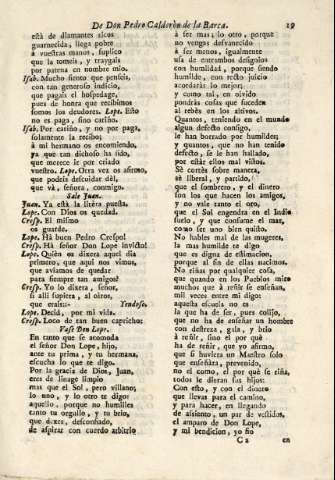 De Don Pedro Calderòn de la Barca.
19
està de diamantes alcos
guarnecida, llega pobre
à vuestras manos, suplico
que la tomeis, y traygais
por patena en nombre mio.
Isab. Mucho siento que penseis,
con tan generoso indicio,
que pagais el hospedage,
pues de honra que recibimos
somos los deudores. Lope. Esto
no es paga, sino cariño.
Isab. Por cariño, y no por paga,
solamente la recibo;
à mi hermano os encomiendo,
ya que tan dichoso ha sido,
que merece ir por criado
vuestro. Lope. Otra vez os afirmo,
que podeis descuidar dèl,
que và, señora, conmigo.
Sale Juan.
Juan. Ya està la litera puesta.
Lope. Con Dios os quedad.
Cresp. El mismo
os guarde.
Lope. Hà buen Pedro Crespo!
Cresp. Hà señor Don Lope invicto!
Lope. Quièn os dixera aquel dia
primero, que aqui nos vimos,
que aviamos de quedar
para siempre tan amigos?
Cresp. Yo lo dixera, señor,
si alli supiera, al oiros,
que erais:- Yendose.
Lope. Decid, por mi vida.
Cresp. Loco de tan buen capricho.
Vase Don Lope.
En tanto que se acomoda
el señor Don Lope, hijo,
ante tu prima, y tu hermana,
escucha lo que te digo.
Por la gracia de Dios, Juan,
eres de linage limpio
mas que el Sol, pero villano;
lo uno, y lo otro te digo:
aquello, porque no humilles
tanto tu orgullo, y tu brio,
que dexes, desconfiado,
de aspirar con cuerdo arbitrio
à ser mas; lo otro, porque
no vengas desvanecido
à ser menos, igualmente
usa de entrambos designios
con humildad, porque siendo
humilde, con recto juicio
acordaràs lo mejor;
y como tal, en olvido
pondràs cosas que suceden
al rebès en los altivos.
Quantos, teniendo en el mundo
algun defecto consigo,
le han borrado por humildes;
y quantos, que no han tenido
defecto, se le han hallado,
por estàr ellos mal vistos.
Sè cortès sobre manera,
sè liberal, y partido,
que el sombrero, y el dinero
son los que hacen los amigos,
y no vale tanto el oro,
que el Sol engendra en el Indio
suelo, y que consume el mar,
como ser uno bien quisto.
No hables mal de las mugeres,
la mas humilde te digo
que es digna de estimacion,
porque al fin de ellas nacimos.
No riñas por qualquier cosa,
que quando en los Pueblos miro
muchos que à reñir se enseñan,
mil veces entre mi digo:
aquesta escuela no es
la que ha de ser, pues colijo,
que no ha de enseñar un hombre
con destreza, gala, y brio
à reñir, sino el por què
ha de reñir, que yo afirmo,
que si huviera un Maestro solo
que enseñàra, prevenido,
no el como, el por què se riña,
todos le dieran sus hijos:
Con esto, y con el dinero
que llevas para el camino,
y para hacer, en llegando
de assiento, un par de vestidos,
el amparo de Don Lope,
y mi bendicion, yo fio
C 2
en